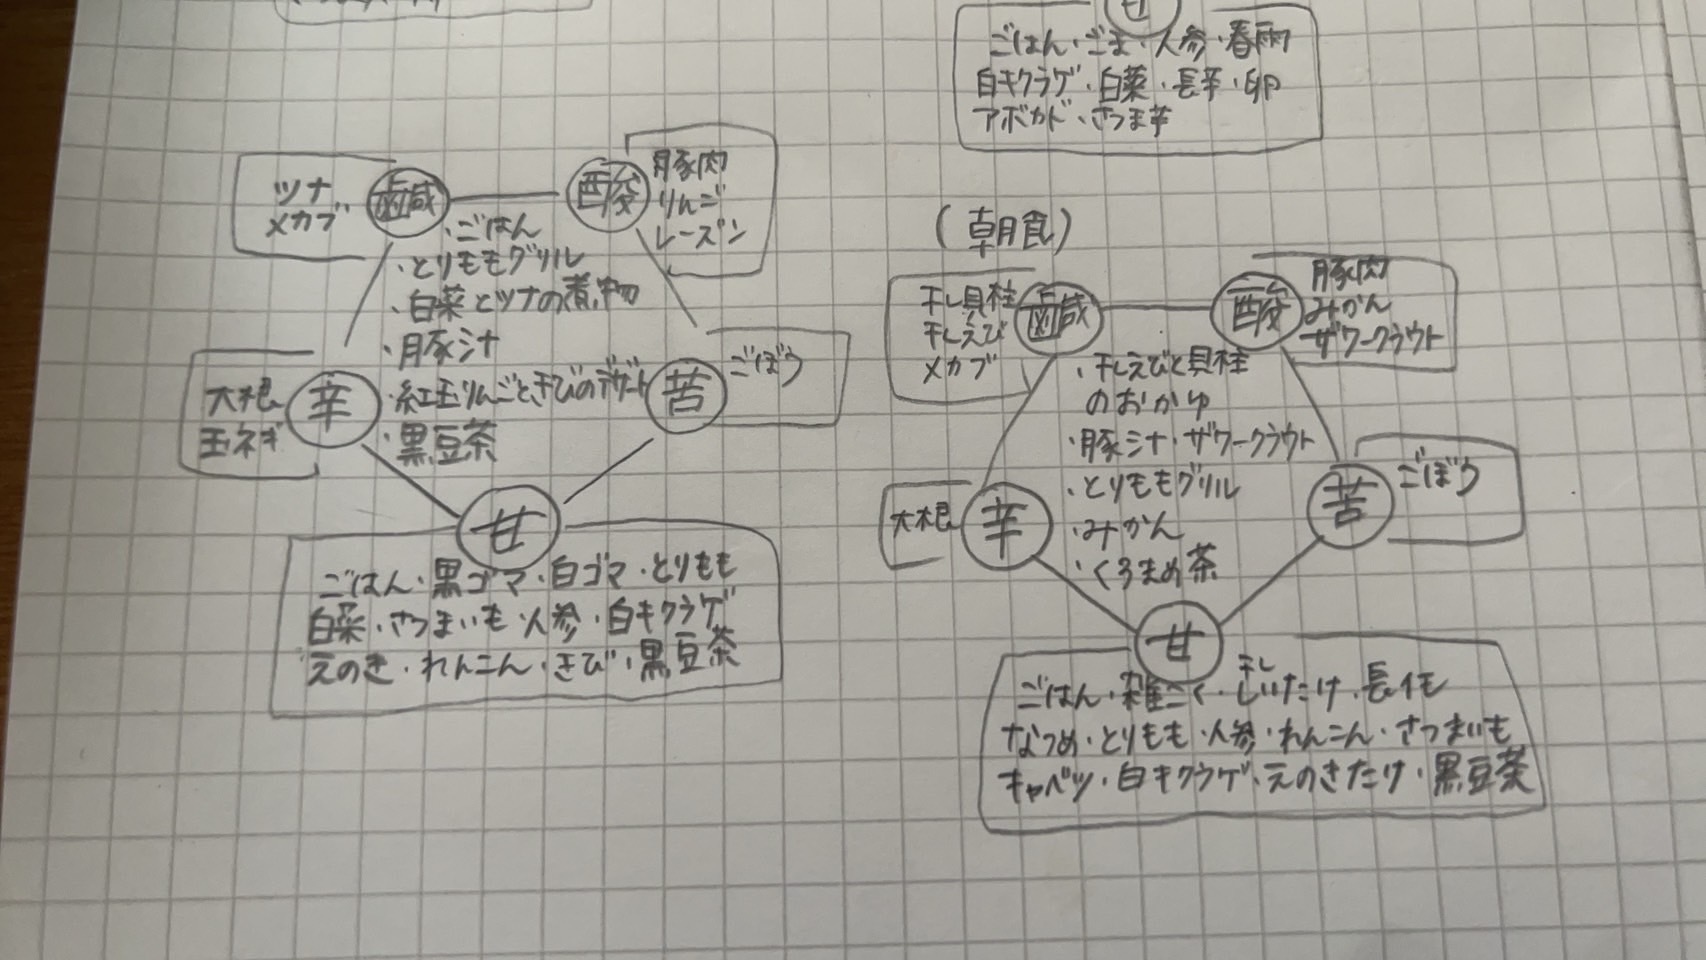 甘
ごはん・ごま・人参・春雨
白キクラゲ・白菜・長芋・卵
アボカド・さつま芋
ツナ
メカブ
鹹
酸
豚肉
りんご
レーズン
・ごはん
・とりももグリル
・白菜とツナの煮物
・豚汁
・紅玉りんごときびのデザート
・黒豆茶
大根
玉ネギ
辛
苦
ごぼう
甘
ごはん・黒ゴマ・白ゴマ・とりもも
白菜・さつまいも・人参・白キクラゲ
えのき・れんこん・きび・黒豆茶
(朝食)
干し貝柱
干しえび
メカブ
鹹
酸
豚肉
みかん
ザワークラウト
・干しえびと貝柱
のおかゆ
・豚汁・ザワークラウト
・とりももグリル
・みかん
・くろまめ茶
大根
辛
苦
ごぼう
甘
ごはん・雑こく・干ししいたけ・長イモ
なつめ・とりもも・人参・れんこん・さつまいも
キャベツ・白キクラゲ・えのきたけ・黒豆茶